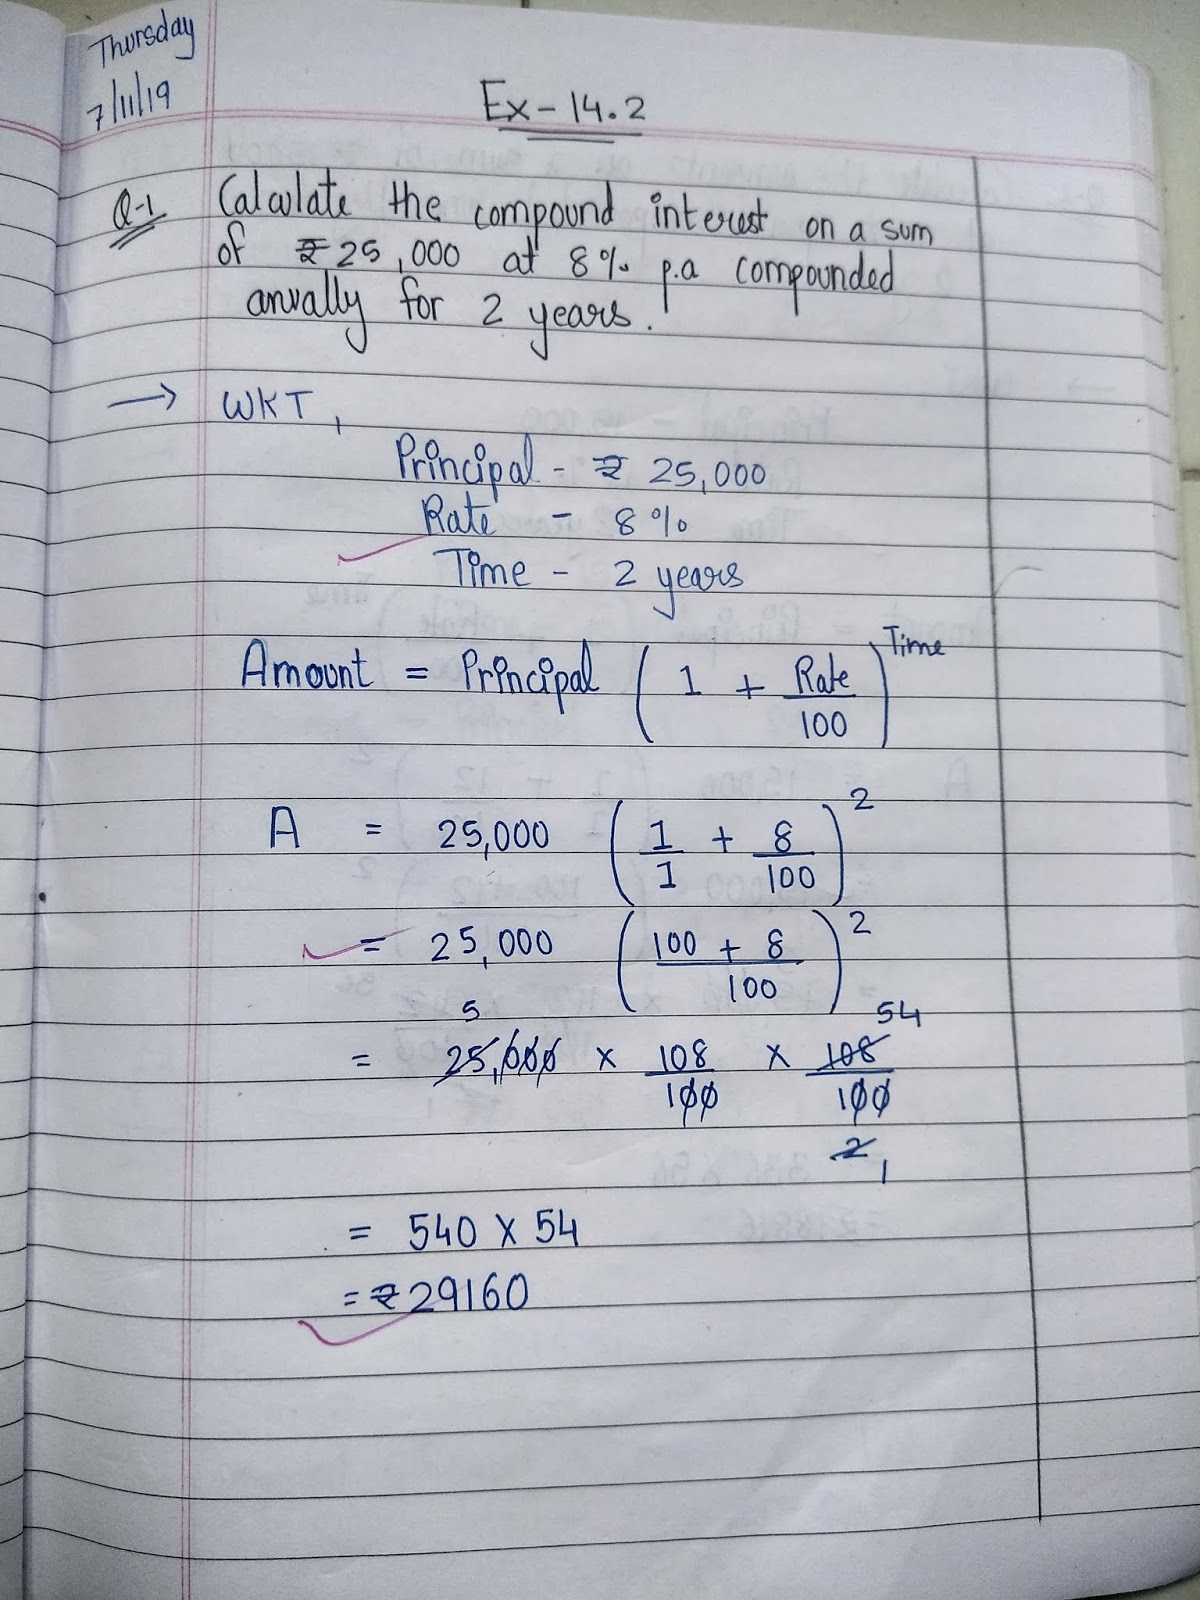 Thursday
7/11/19
Ex - 14.2
Q-1 Calculate the compound interest on a sum
of ₹ 25,000 at 8% p.a compounded
anually for 2 years.
→ WKT,
Principal - ₹ 25,000
Rate - 8%
Time - 2 years
Amount = Principal ( 1 + Rate/100 )^Time
A = 25,000 ( 1/1 + 8/100 )^2
= 25,000 ( 100 + 8 / 100 )^2
5 54
= 25,000 × 108/100 × 108/100
2 1
= 540 × 54
= ₹ 29160